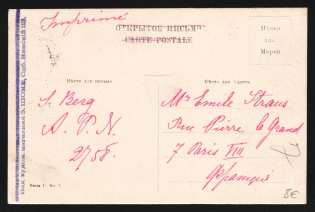 Imprimé
ОТКРЫТОЕ ПИСЬМО
CARTE POSTALE
Мѣсто
для
Марки
Мѣсто для письма
Мѣсто для адреса
S. Berg
A. P. N.
2758.
Mr Emile Straus
Rue Pierre le Grand
7 Paris VIII
Франція
Serie I No. 1